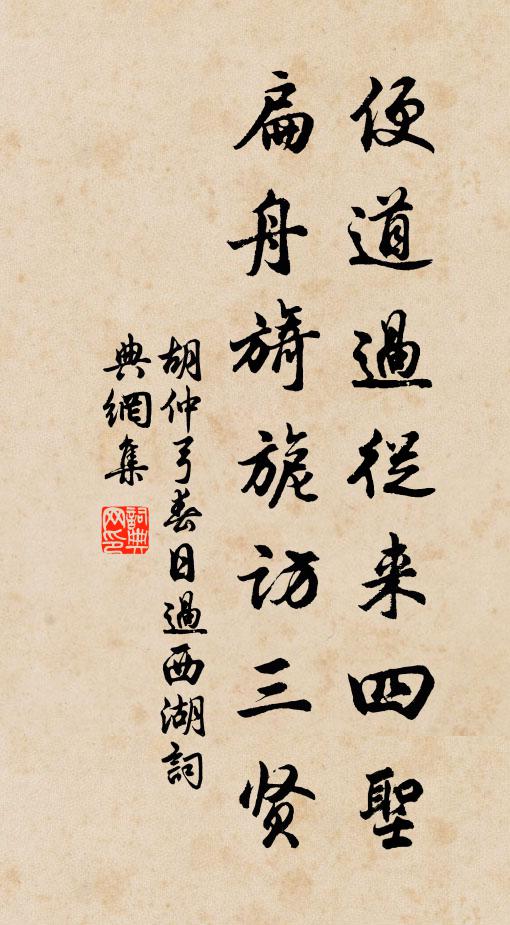 便道過從来四聖
扁舟旖旎访三贤
胡仲弓春日過西湖詞
典網集
詞典網印